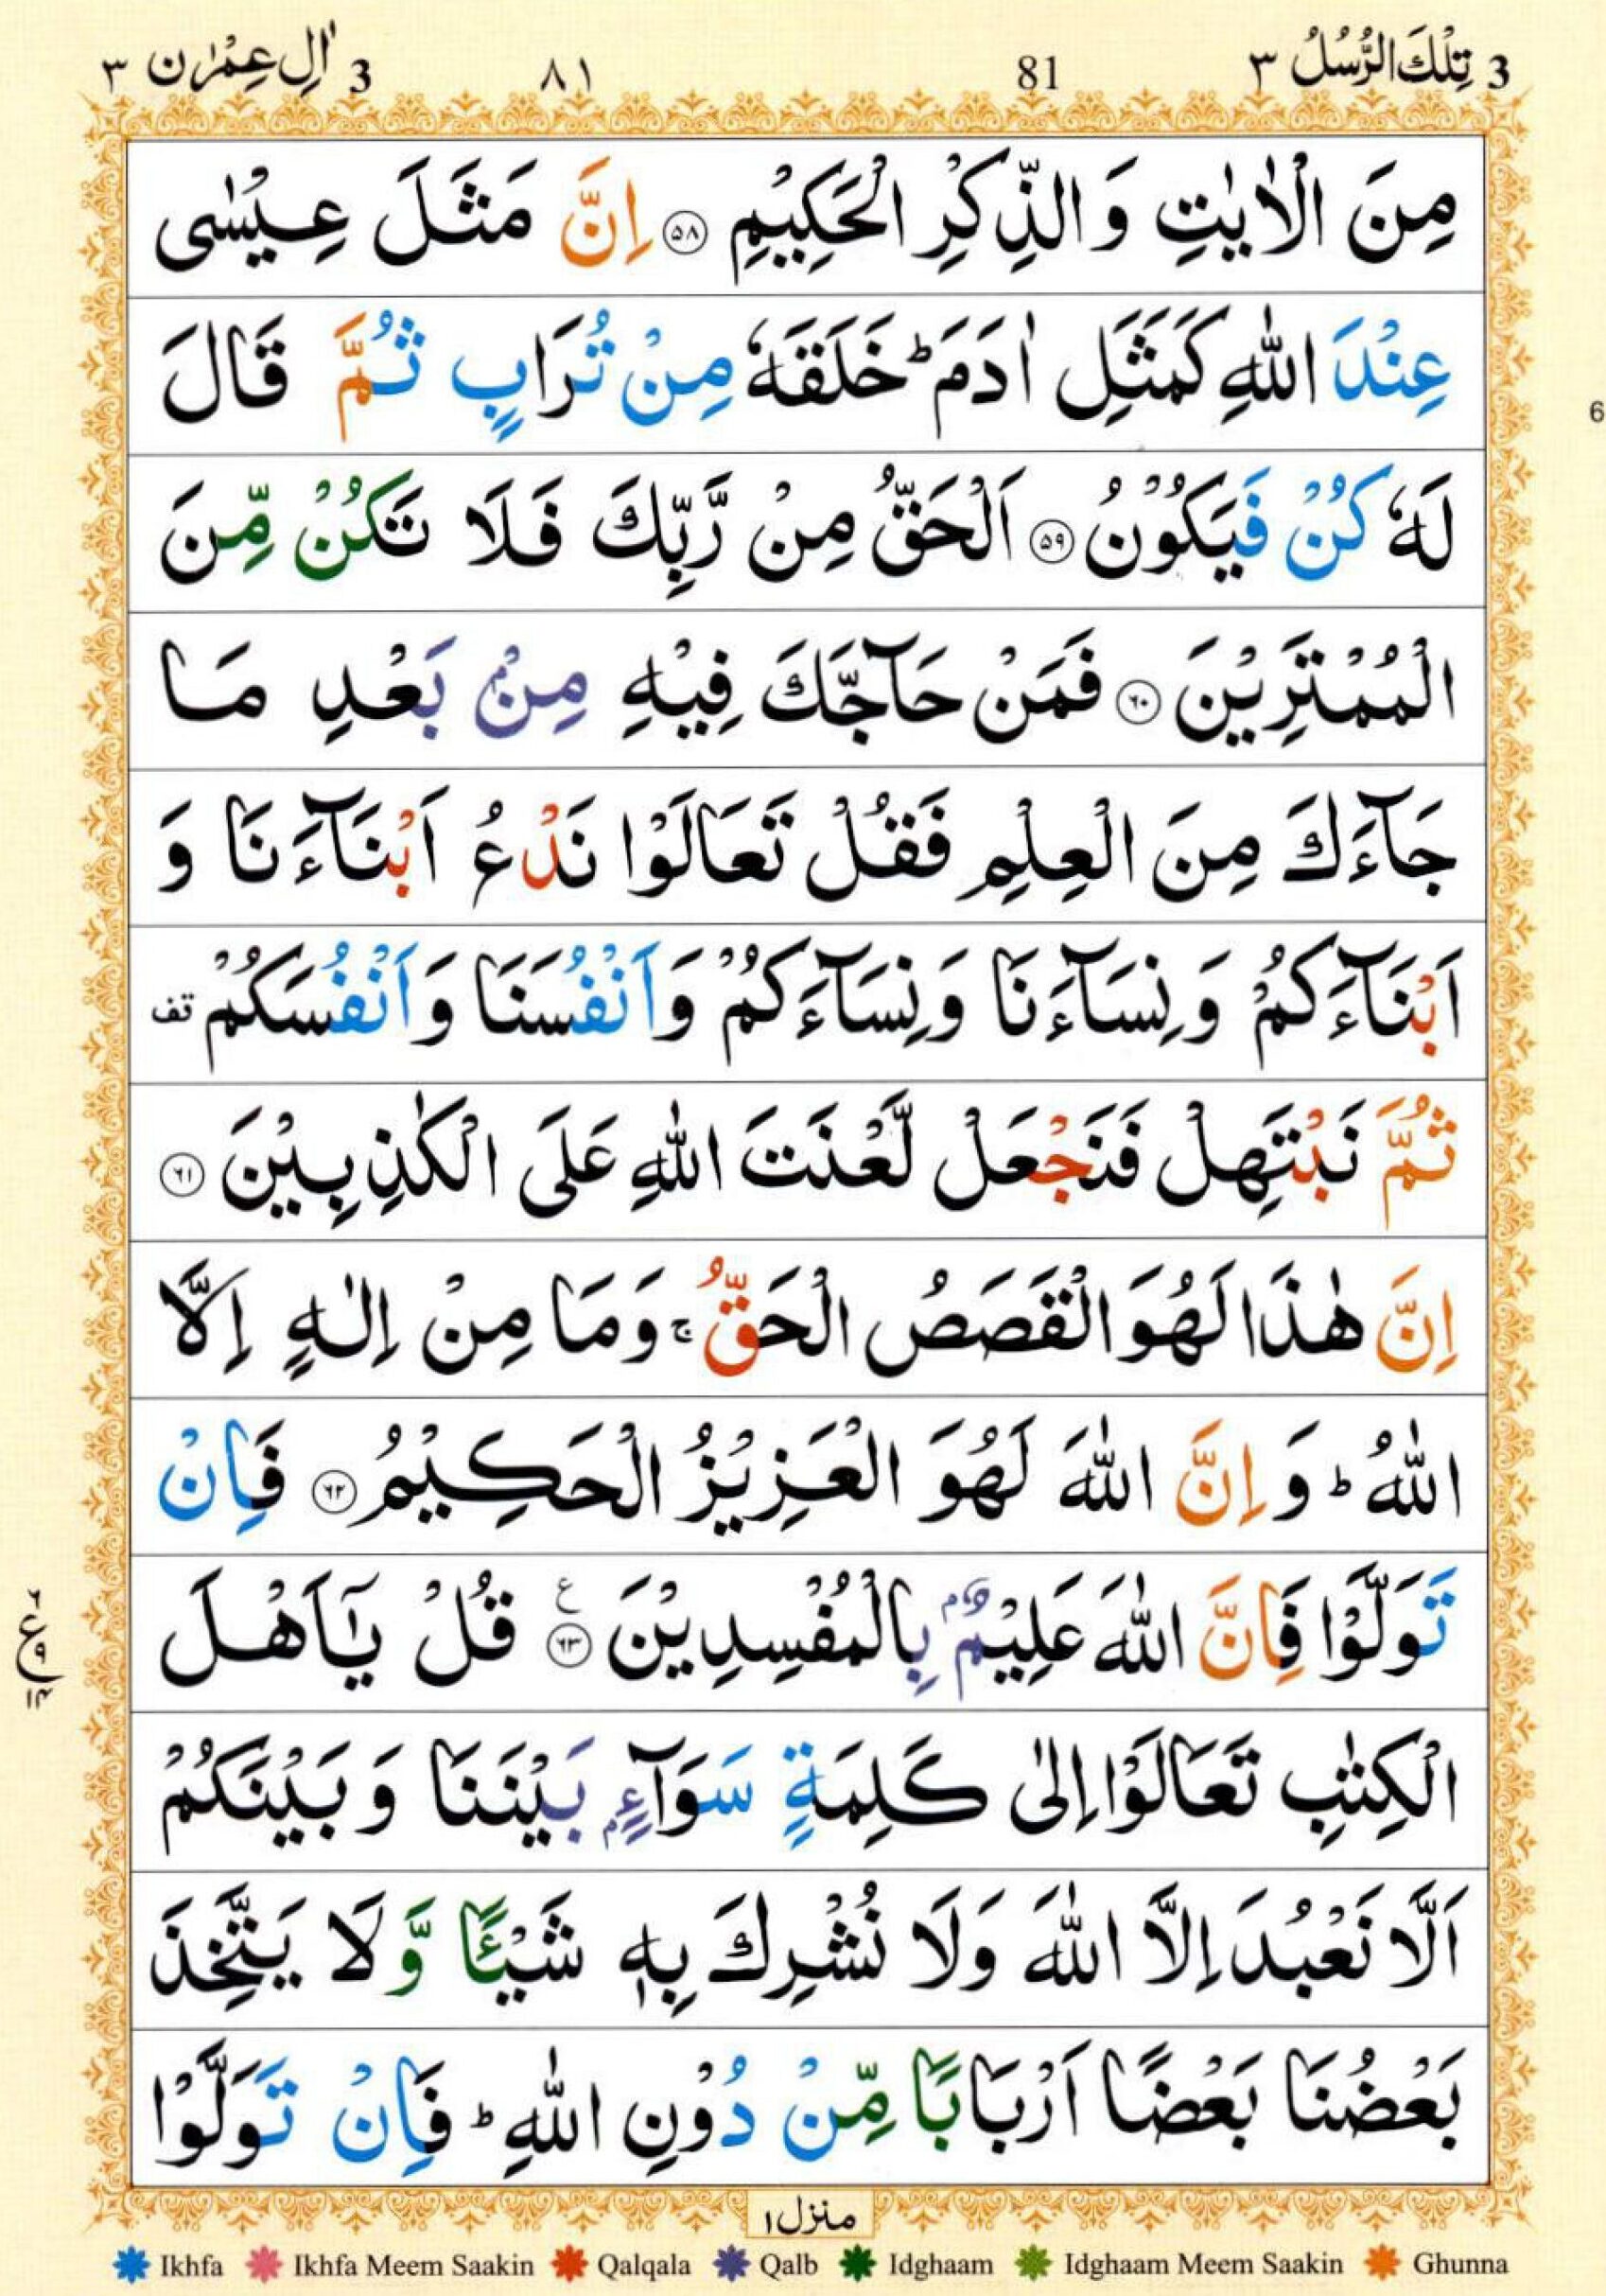 3 تِلْكَ الرُّسُلُ ٣ 81 ٨١ 3 اٰلِ عِمْرٰن ٣
مِنَ الْاٰيٰتِ وَ الذِّكْرِ الْحَكِيْمِ ۵۸ اِنَّ مَثَلَ عِيْسٰى
عِنْدَ اللّٰهِ كَمَثَلِ اٰدَمَ ؕ خَلَقَهٗ مِنْ تُرَابٍ ثُمَّ قَالَ
6
لَهٗ كُنْ فَيَكُوْنُ ۵۹ اَلْحَقُّ مِنْ رَّبِّكَ فَلَا تَكُنْ مِّنَ
الْمُمْتَرِيْنَ ۶۰ فَمَنْ حَآجَّكَ فِيْهِ مِنْۢ بَعْدِ مَا
جَآءَكَ مِنَ الْعِلْمِ فَقُلْ تَعَالَوْا نَدْعُ اَبْنَآءَنَا وَ
اَبْنَآءَكُمْ وَ نِسَآءَنَا وَ نِسَآءَكُمْ وَ اَنْفُسَنَا وَ اَنْفُسَكُمْ قف
ثُمَّ نَبْتَهِلْ فَنَجْعَلْ لَّعْنَتَ اللّٰهِ عَلَى الْكٰذِبِيْنَ ۶۱
اِنَّ هٰذَا لَهُوَ الْقَصَصُ الْحَقُّ ۚ وَ مَا مِنْ اِلٰهٍ اِلَّا
اللّٰهُ ؕ وَ اِنَّ اللّٰهَ لَهُوَ الْعَزِيْزُ الْحَكِيْمُ ۶۲ فَاِنْ
تَوَلَّوْا فَاِنَّ اللّٰهَ عَلِيْمٌۢ بِالْمُفْسِدِيْنَ ۶۳ ع قُلْ يٰۤاَهْلَ
۲ ع ۹ ۱۴
الْكِتٰبِ تَعَالَوْا اِلٰى كَلِمَةٍ سَوَآءٍۭ بَيْنَنَا وَ بَيْنَكُمْ
اَلَّا نَعْبُدَ اِلَّا اللّٰهَ وَ لَا نُشْرِكَ بِهٖ شَيْـًٔا وَّ لَا يَتَّخِذَ
بَعْضُنَا بَعْضًا اَرْبَابًا مِّنْ دُوْنِ اللّٰهِ ؕ فَاِنْ تَوَلَّوْا
منزل ۱
Ikhfa Ikhfa Meem Saakin Qalqala Qalb Idghaam Idghaam Meem Saakin Ghunna